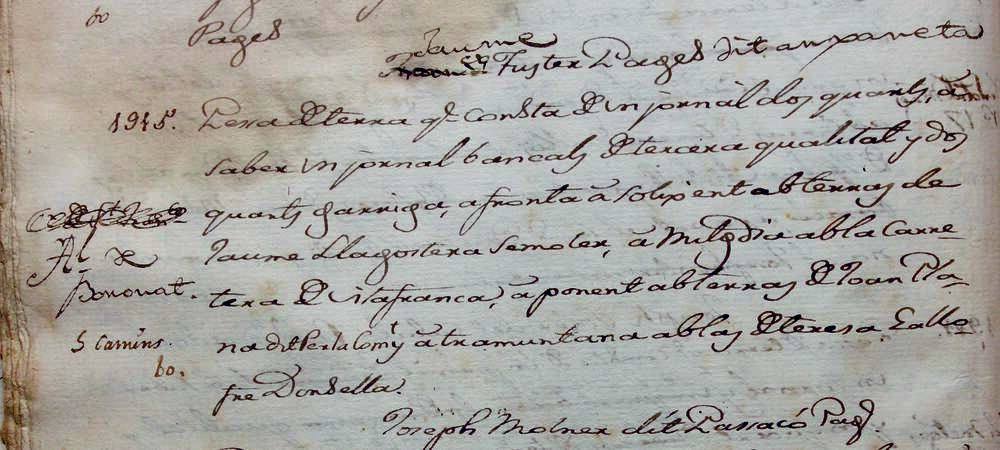 bo
Pagès
Jaume
Fuster Pagès dit en paneta
1915. Pessa de terra q.e consta de un jornal dos quarts, a
saber un jornal bancals de tercera qualitat y dos
quarts garriga, afronta a solixent ab terras de
Jaume Llagostera Semoler, a Mitgdia ab la Carre-
tera de Vilafranca, a ponent ab terras de Joan Pla-
na dit Bertolomy a tramuntana ab las de teresa Gallo
fre Donsella.
A
Bonovat.
5 camins.
bo.
Joseph Moliner dit Passacó Pag.s